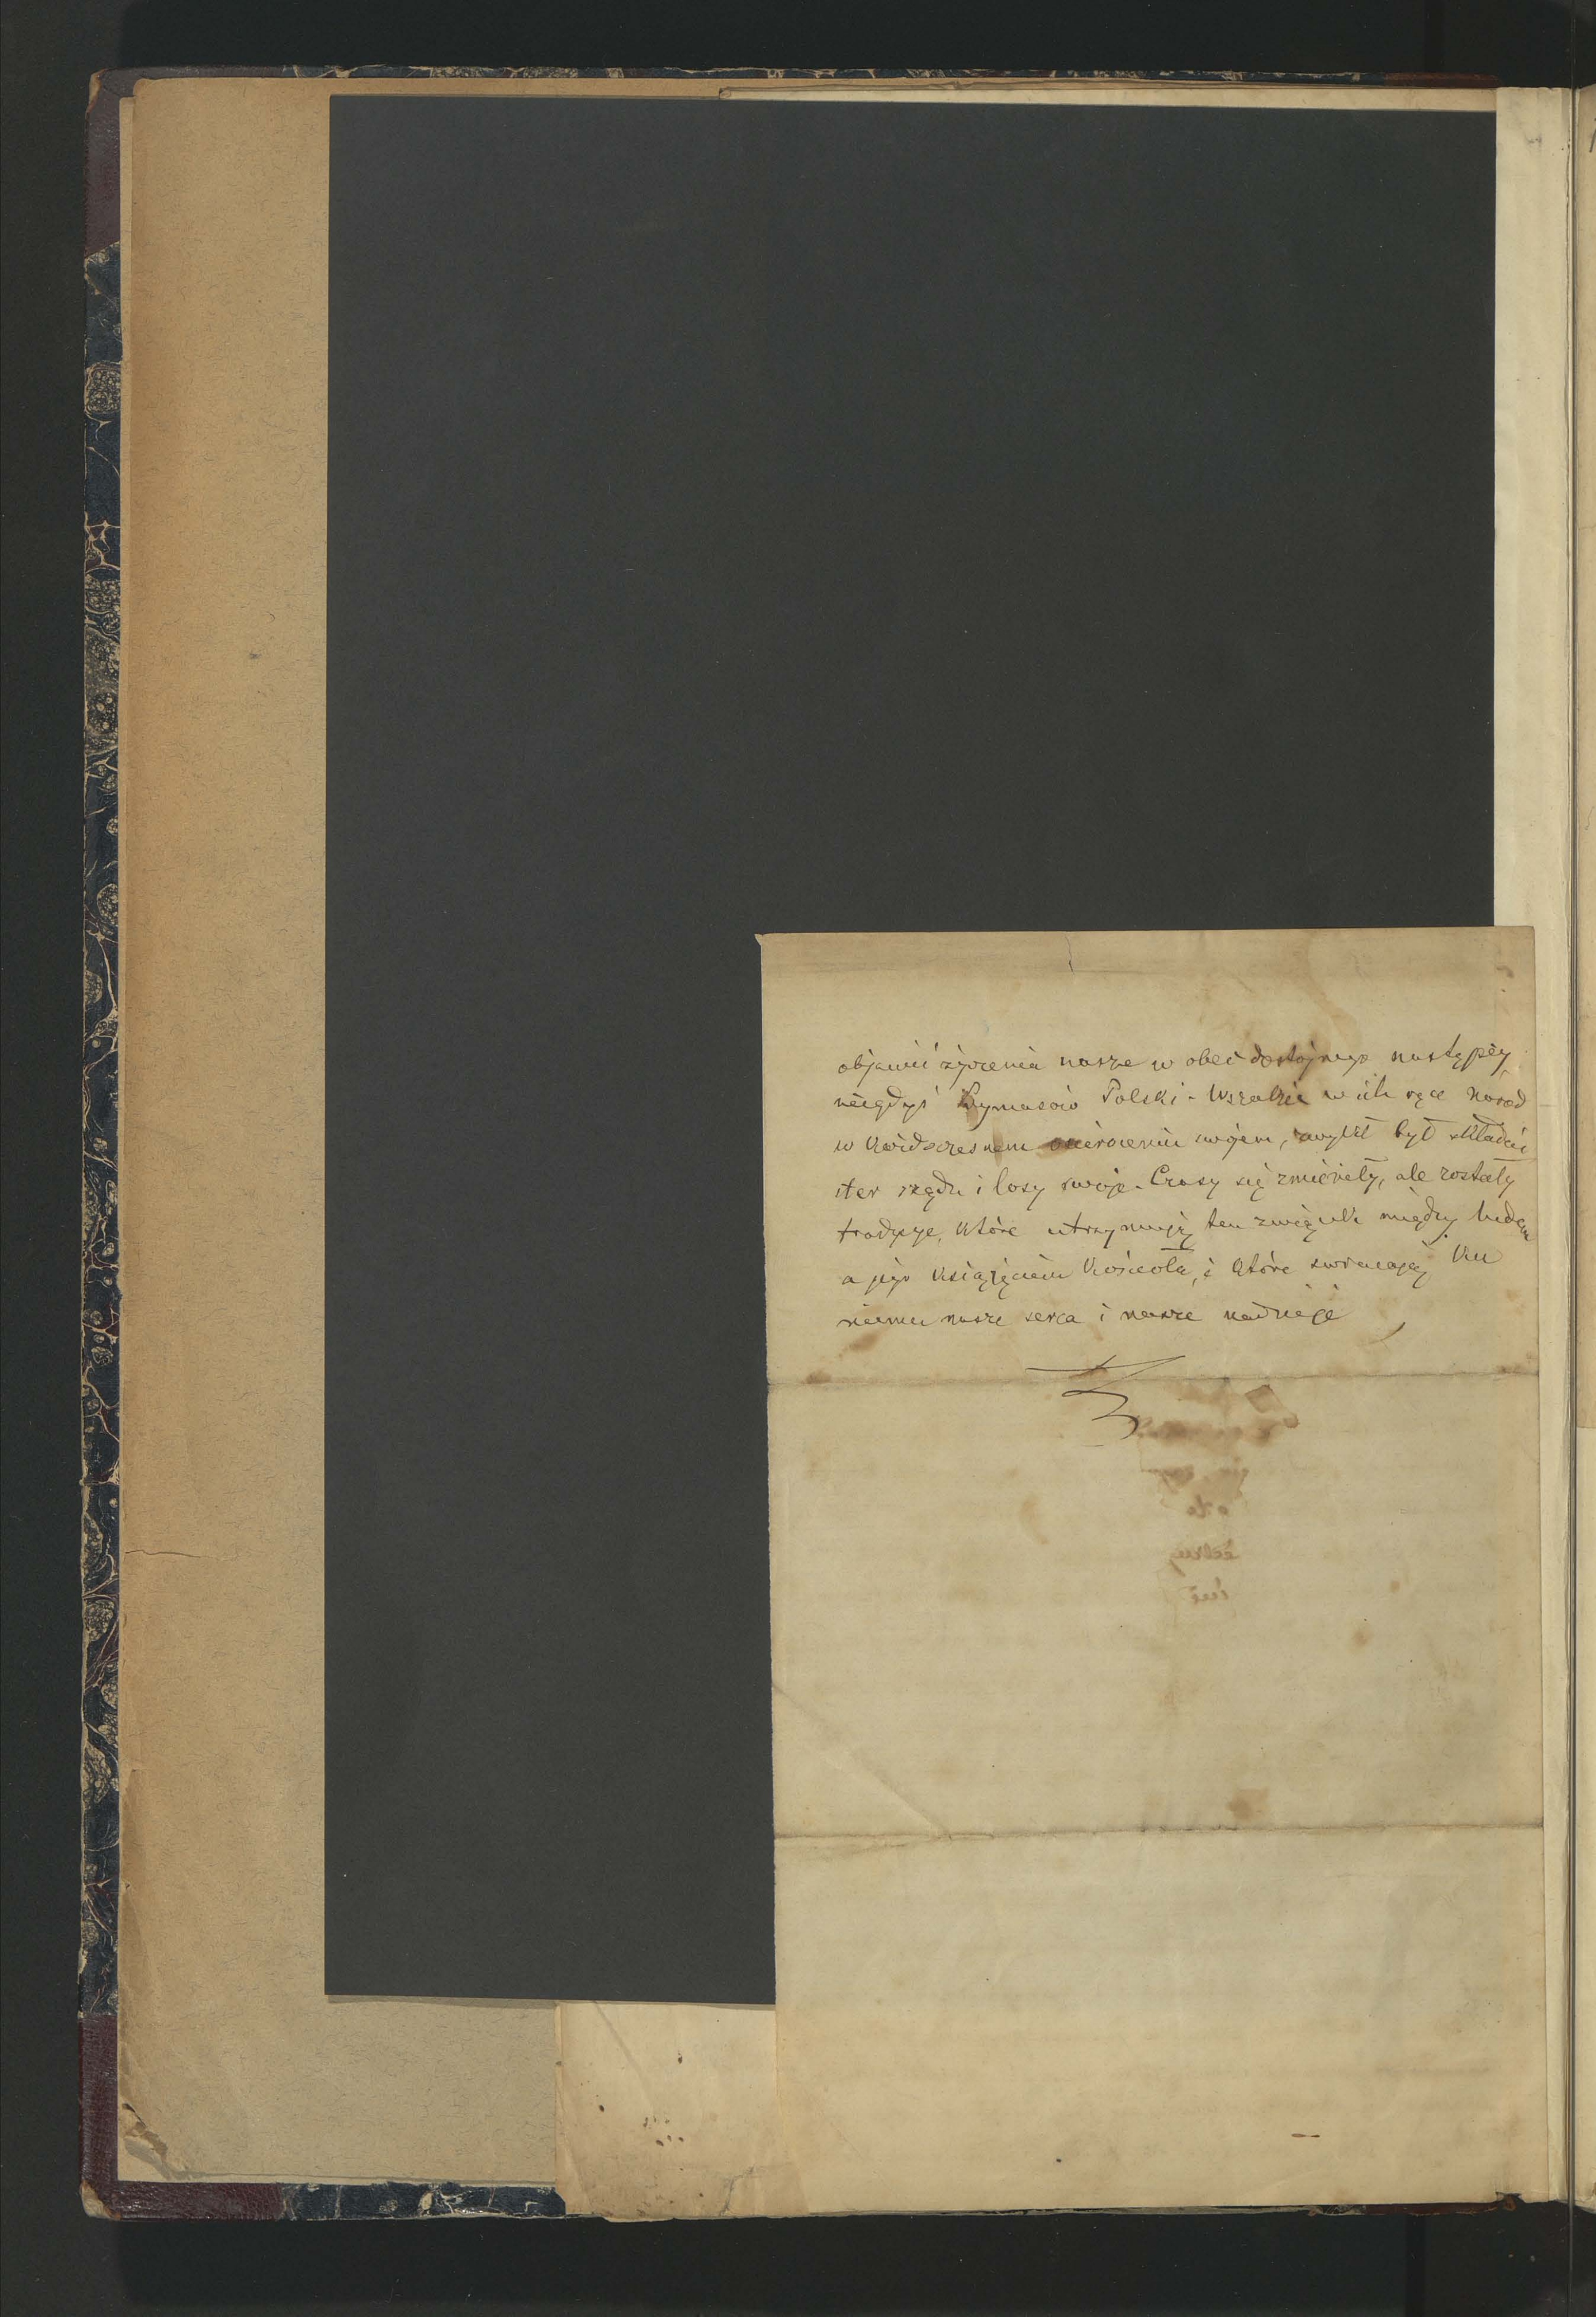 objawić życzenia nasze w obec dostojnego następcy
niegdyś Prymasów Polski. Wszakże w ich ręce naród
w każdoczesnem osieroceniu swojem, zwykł był składać
ster rządu i losy swoje. Czasy się zmieniły, ale zostały
tradycje, które utrzymują ten związek między ludem
a jego książęciem kościoła, i które zwracają ku
niemu nasze serca i nasze nadzieje